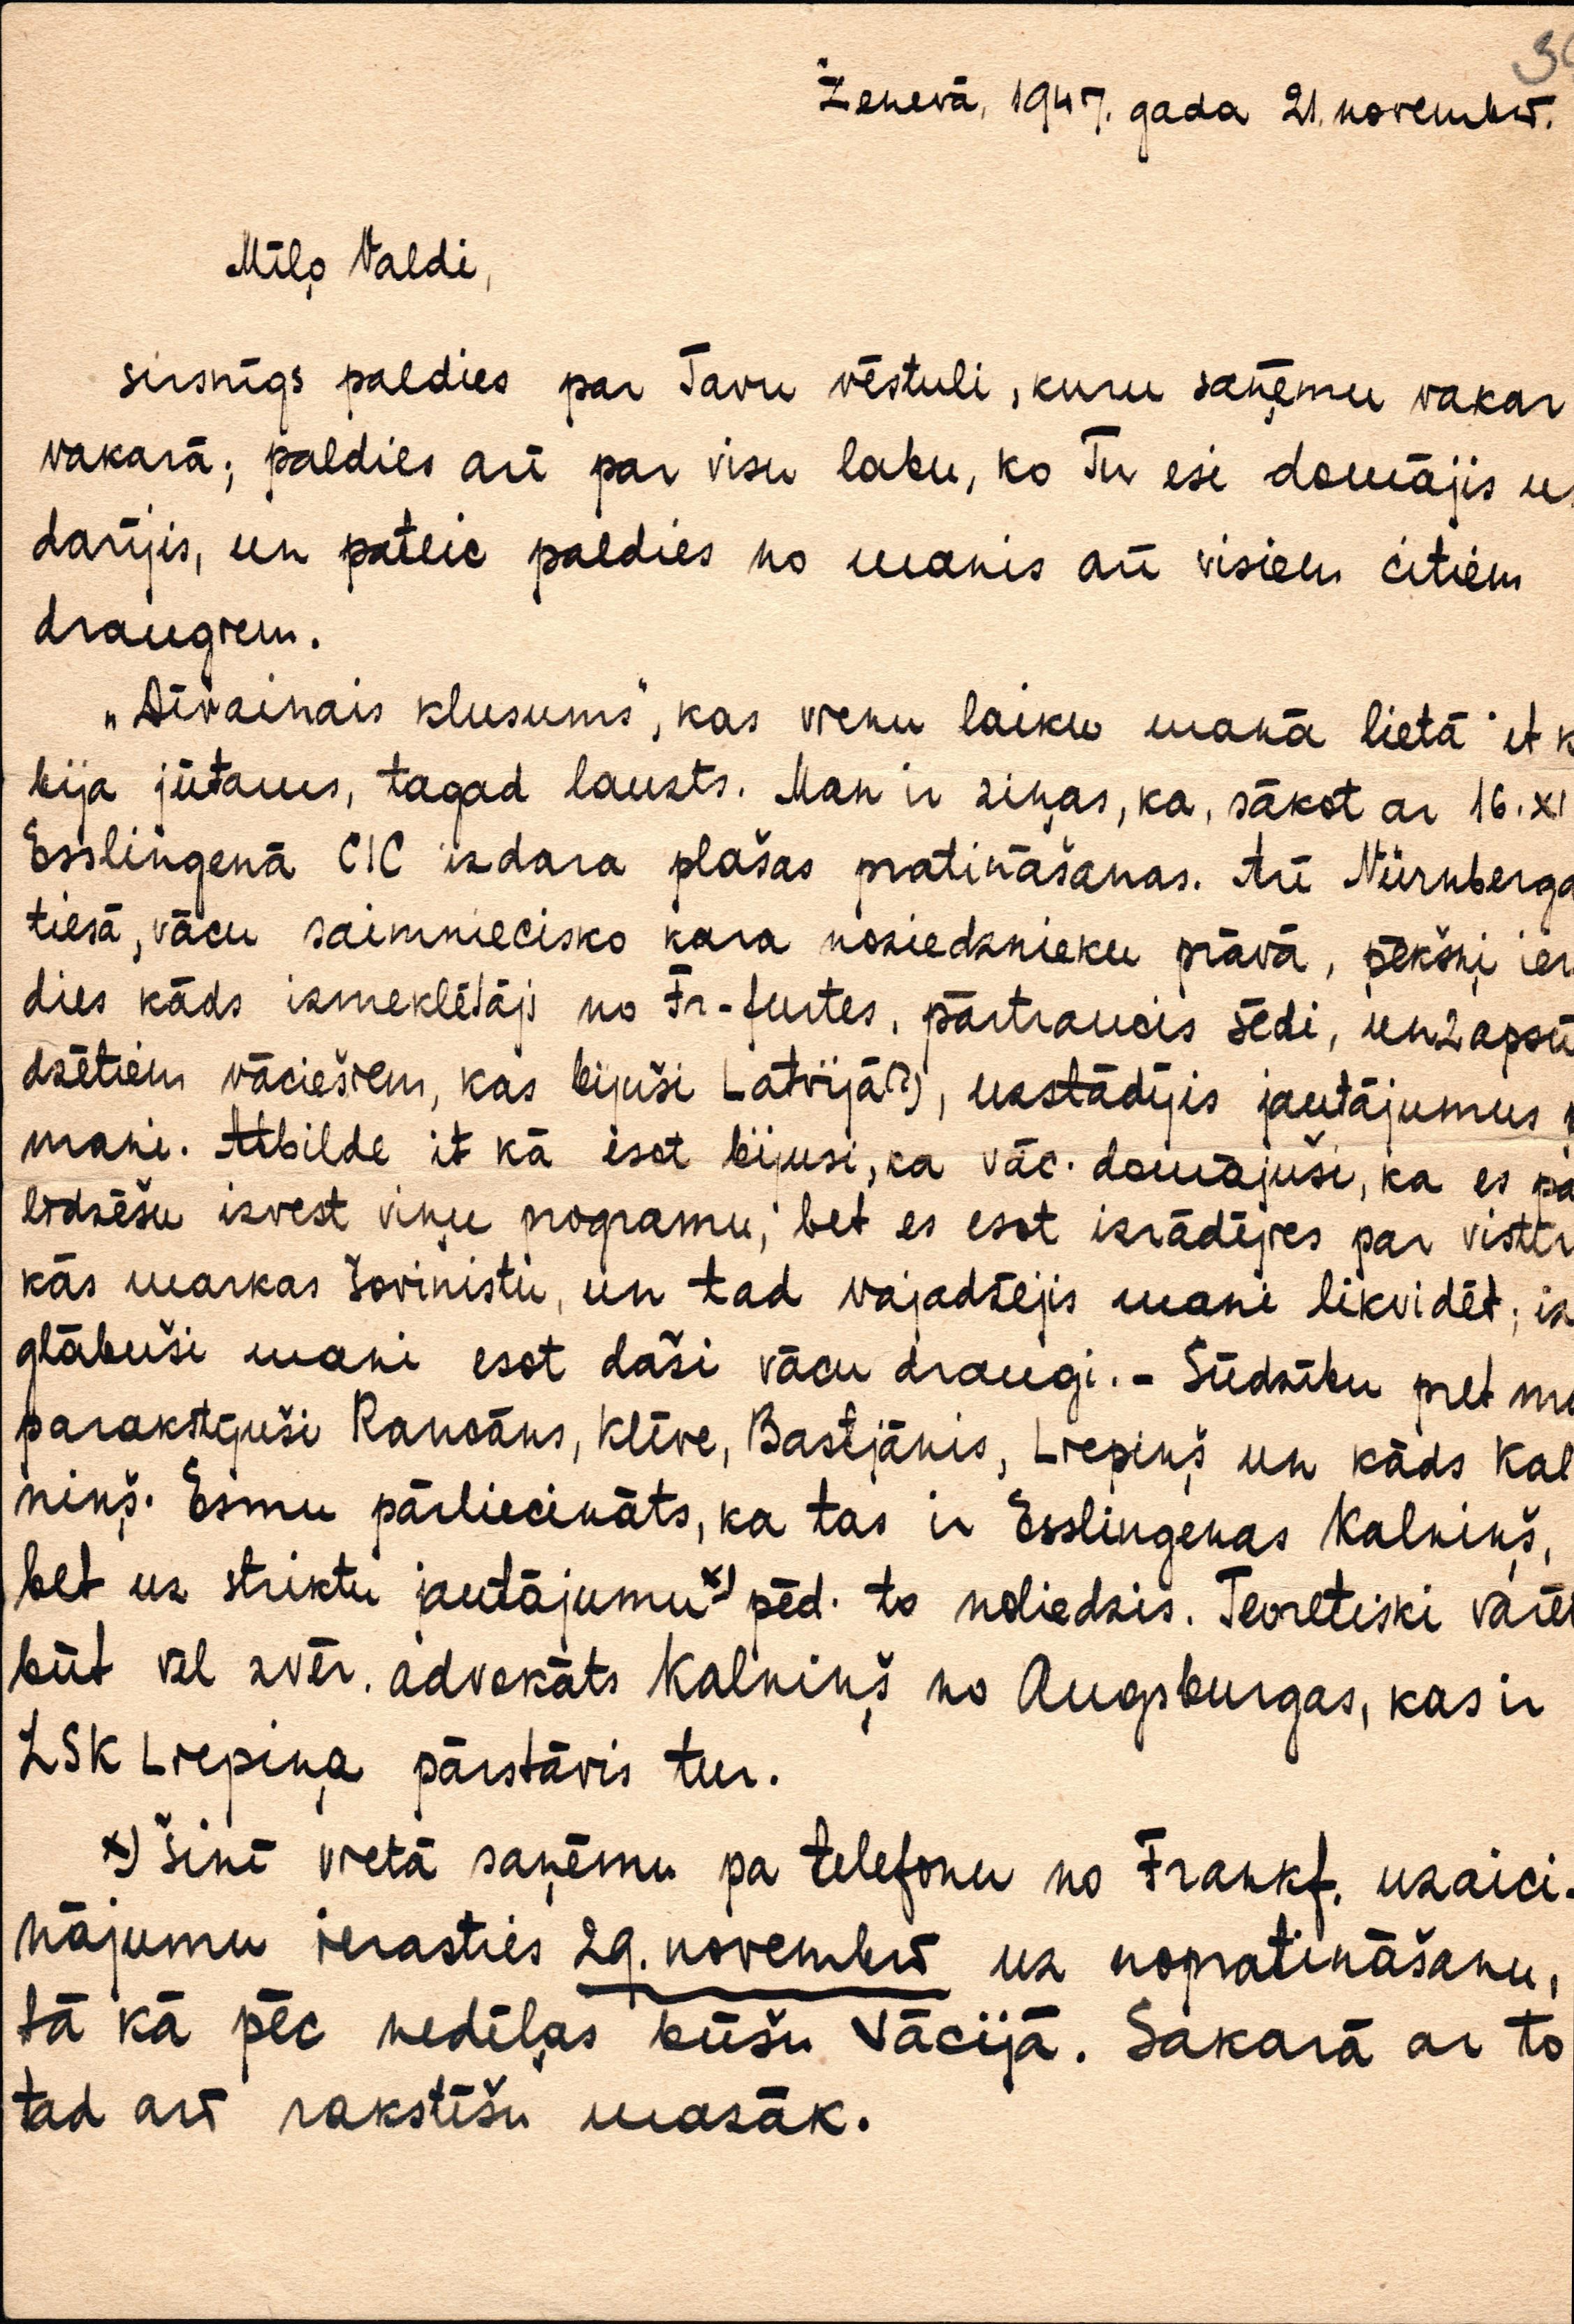 3
Ženevā, 1947. gada 21. novembrī.
Mīļo Valdi,
sirsnīgs paldies par Tavu vēstuli, kuru saņēmu vakar
vakarā; paldies arī par visu labu, ko Tu esi domājis u
darījis, un pateic paldies no manis arī visiem citiem
draugiem.
„Dīvainais klusums", kas vienu laiku manā lietā it k
bija jūtams, tagad lauzts. Man ir ziņas, ka, sākot ar 16. XI
Esslingenā CIC izdara plašas pratināšanas. Arī Nürnberga
tiesā, vācu saimniecisko kara noziedznieku prāvā, pēkšņi ier
dies kāds izmeklētājs no Fr-furtes, pārtraucis sēdi, un 2 apsū
dzētiem vāciešiem, kas bijuši Latvijā(?), uzstādījis jautājumus
mani. Atbilde it kā esot bijusi, ka vāc. domājuši, ka es pa
līdzēšu izvest viņu programu, bet es esot izrādījies par vistīr
kās markas šovinistu, un tad vajadzējis mani likvidēt; iz
glābuši mani esot daži vācu draugi. - Sūdzību pret ma
parakstījuši Rancāns, Klīve, Bastjānis, Liepiņš un kāds Kal
niņš. Esmu pārliecināts, ka tas ir Esslingenas Kalniņš,
bet uz striktu jautājumu x) pēd. to noliedzis. Teorētiski varēt
būt vēl zvēr. advokāts Kalniņš no Augsburgas, kas ir
LSK Liepiņa pārstāvis tur.
x) Šinī vietā saņēmu pa telefonu no Frankf. uzaici-
nājumu ierasties 29. novembrī uz nopratināšanu,
tā kā pēc nedēļas būšu Vācijā. Sakarā ar to
tad arī rakstīšu mazāk.